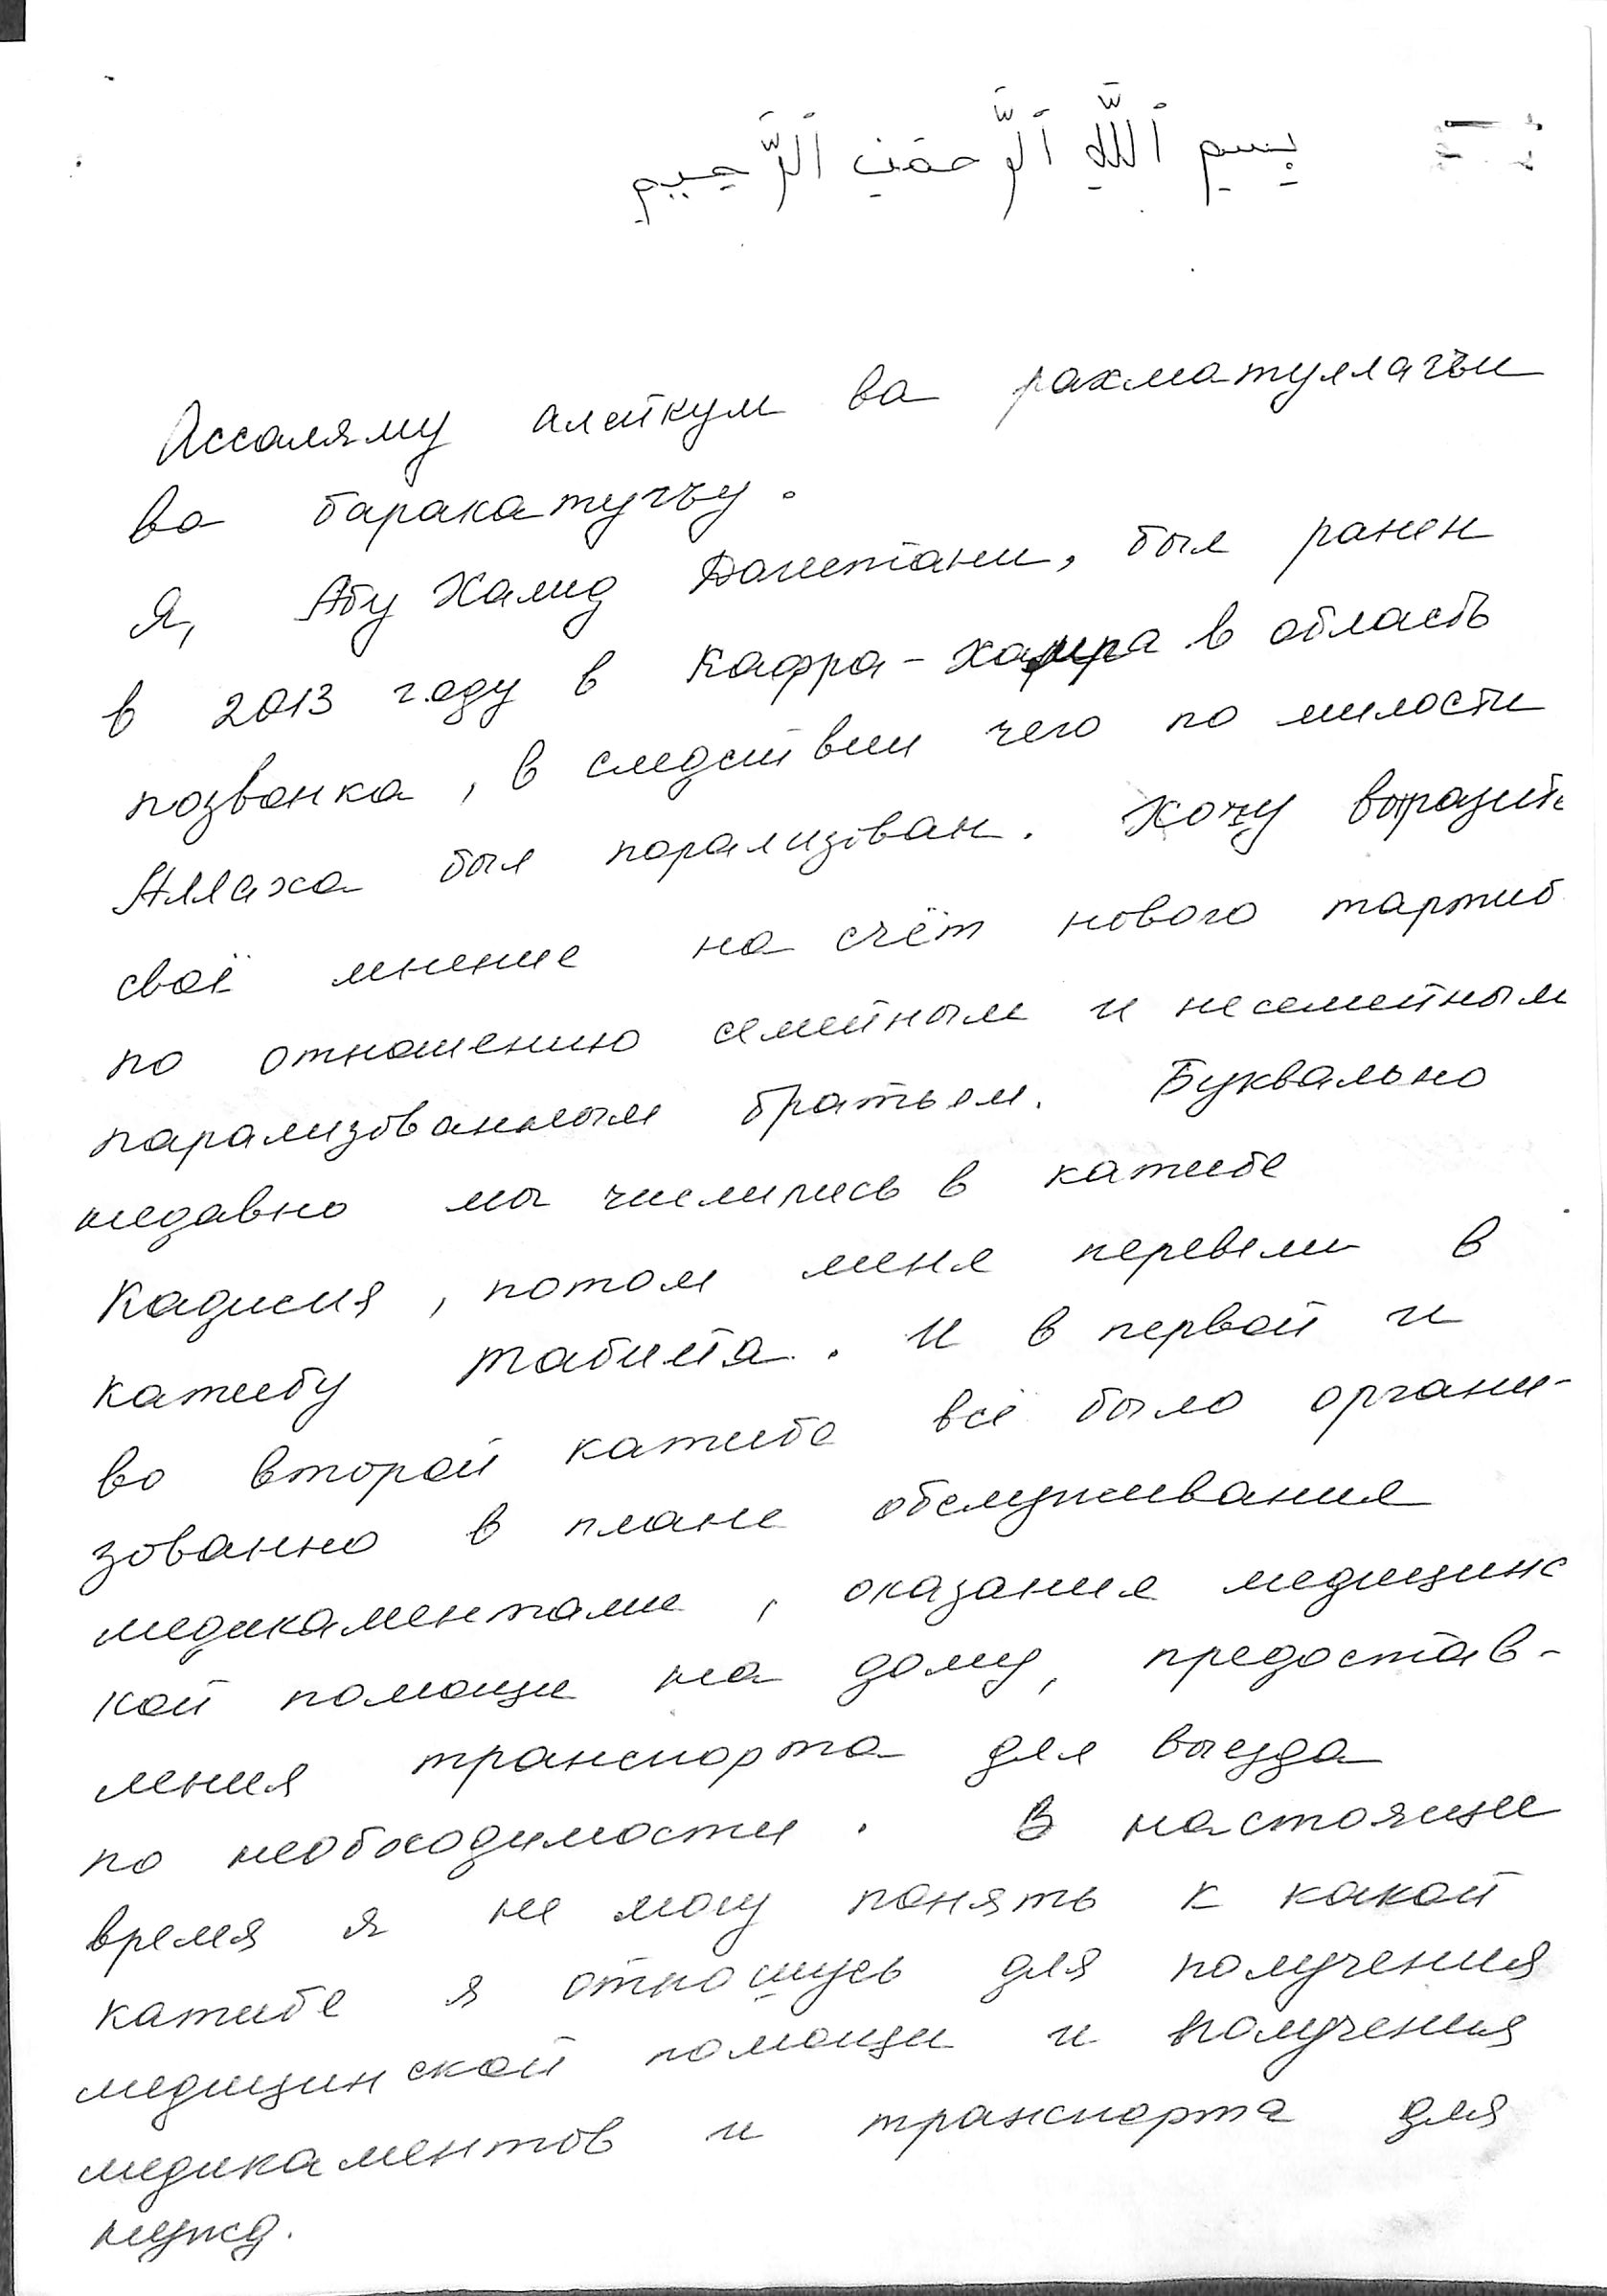 بِسْمِ ٱللَّهِ ٱلرَّحْمَٰنِ ٱلرَّحِيمِ
Ассаляму алейкум ва рахматуллагьи
ва баракатугъу.
Я, Абу Халид Дагестани, был ранен
в 2013 году в Кафра-Хамра в область
позвонка, в следствии чего по милости
Аллаха был парализован. Хочу выразить
своё мнение на счёт нового тартиб
по отношению семейным и несемейным
парализованным братьям. Буквально
недавно мы числились в катибе
Кадисия, потом меня перевели в
катибу Табийа. И в первой и
во второй катибе всё было органи-
зованно в плане обслуживания
медикаментами, оказание медицинс
кой помощи на дому, предостав-
ления транспорта для выезда
по необходимости. В настоящие
время я не могу понять к какой
катибе я отношусь для получения
медицинской помощи и получения
медикаментов и транспорта для
нужд.